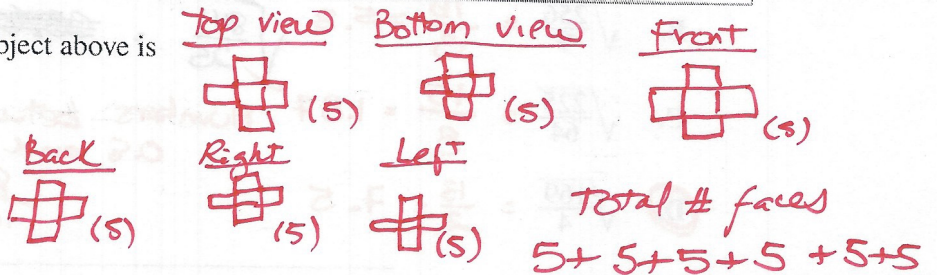 bject above is
Top view Bottom view Front
(5) (5) (5)
Back Right Left
(5) (5) (5)
Total # faces
5+ 5+5+5 +5+5